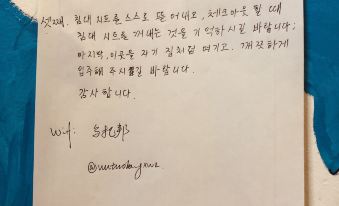 셋째. 침대 시트를 스스로 뜯어내고, 체크아웃 할 때
침대 시트를 꺼내는 것을 기억하시길 바랍니다;
마지막, 이곳을 자기 집처럼 여기고. 깨끗하게
입주해 주시길 바랍니다.
감사합니다.
Wifi: 乌托邦